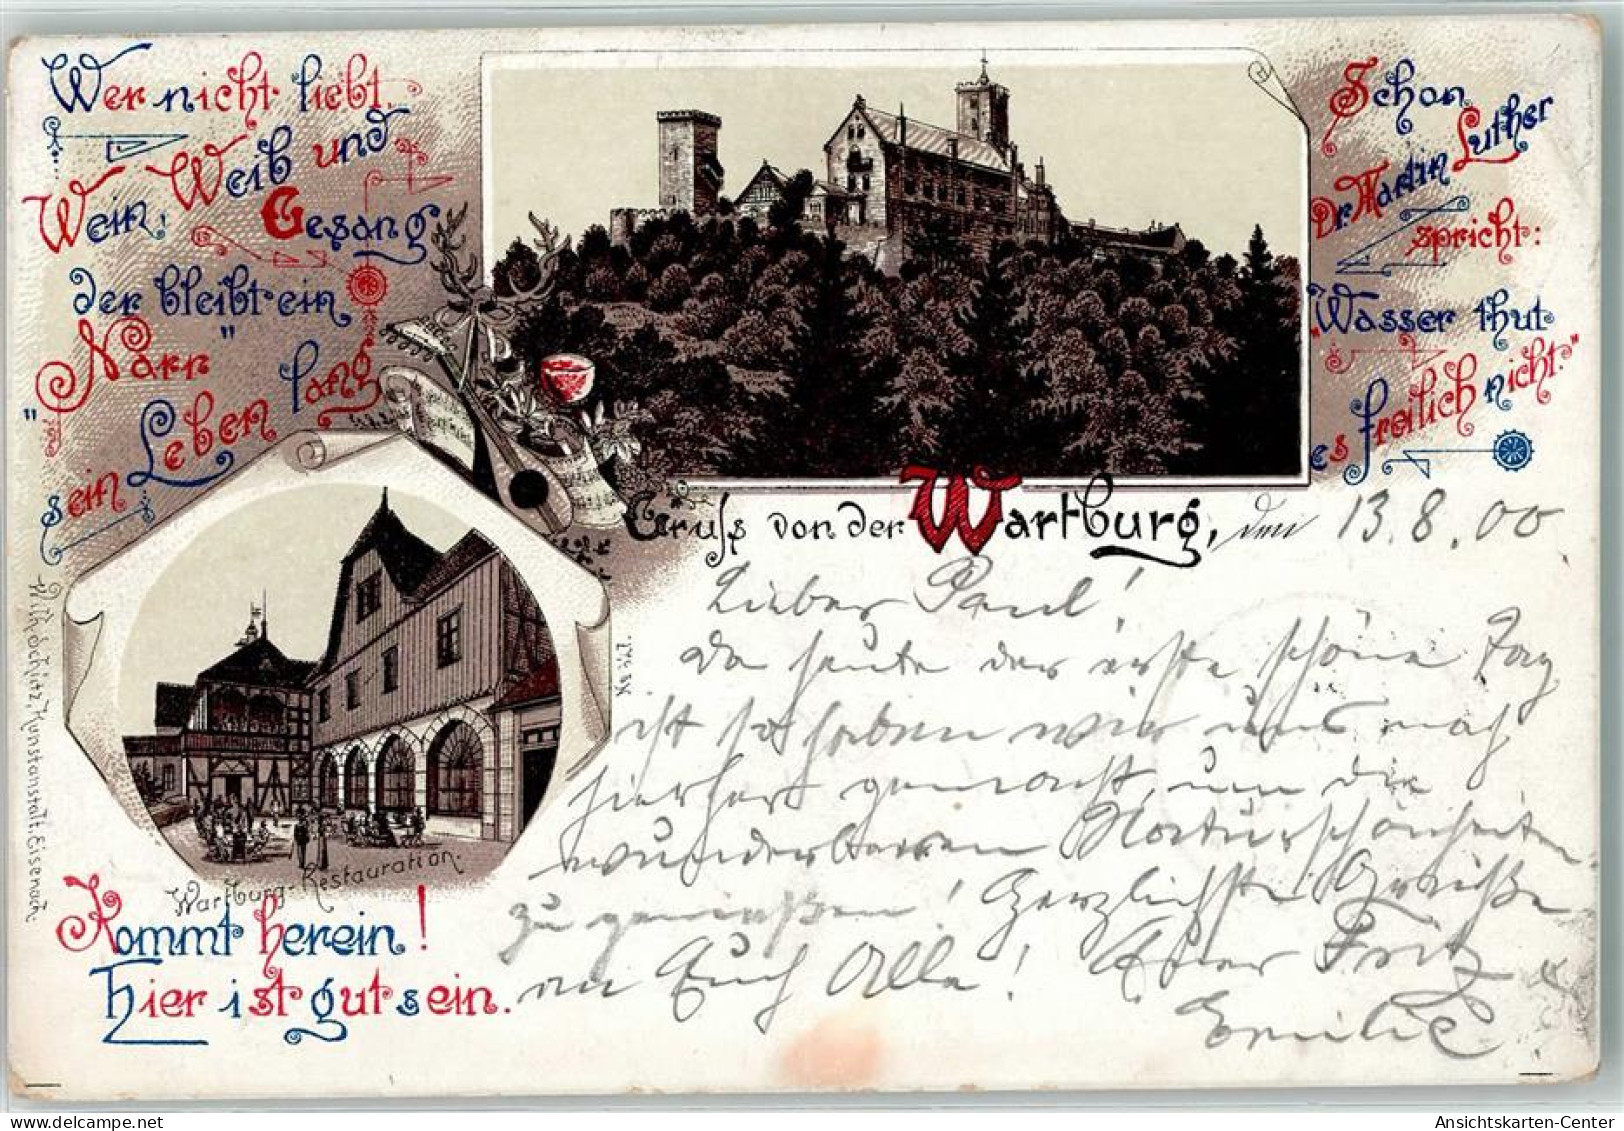 Wer nicht liebt
Wein, Weib und
Gesang
der bleibt ein
"Narr"
sein Leben lang
Schon
Dr. Martin Luther
spricht:
"Wasser thut
es freilich nicht."
Gruss von der Wartburg, den 13.8.00
Lieber Paul!
Da heute der erste schöne Tag
ist so haben wir uns nach
hierher gemacht, um die
wunderbaren Naturschönheiten
zu genießen! Herzlichste Grüße
an Euch Alle! Euer Fritz
Emilie
Wartburg-Restauration.
Kommt herein!
Hier ist gut sein.
Kunstanstalt, Eisenach.
delcampe.net
Ansichtskarten-Center